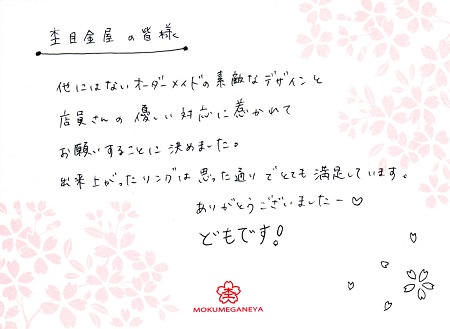 杢目金屋の皆様
他にはないオーダーメイドの素敵なデザインと
店員さんの優しい対応に惹かれて
お願いすることに決めました。
出来上がったリングは思った通りでとても満足しています。
ありがとうございましたー♡
どもです!
杢
MOKUMEGANEYA